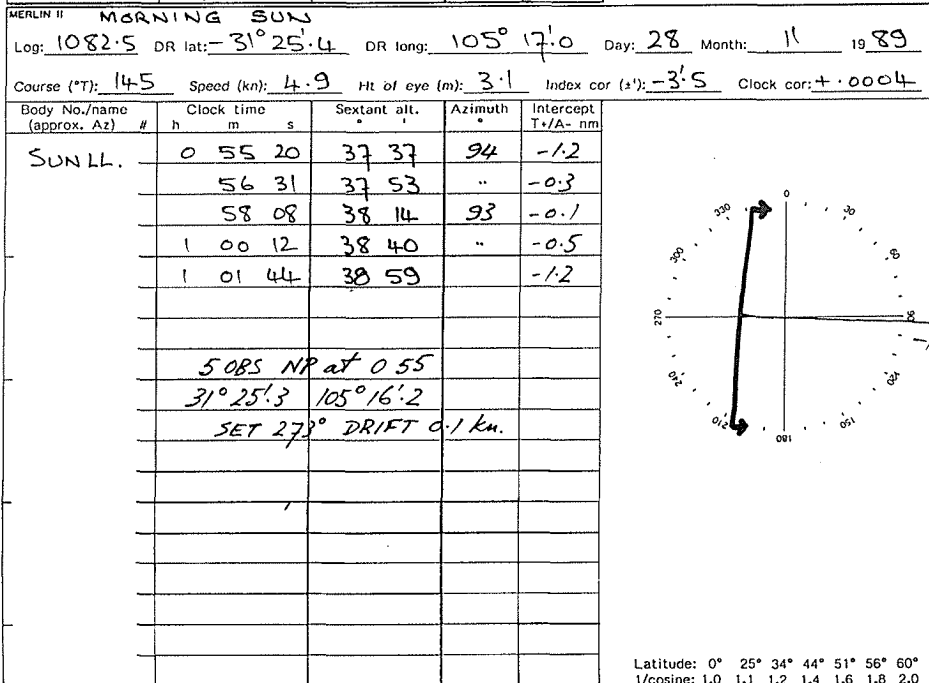 MERLIN II MORNING SUN
Log: 1082.5 DR lat: -31° 25'.4 DR long: 105° 17'.0 Day: 28 Month: 11 19 89
Course (°T): 145 Speed (kn): 4.9 Ht of eye (m): 3.1 Index cor (±'): -3'.5 Clock cor: +.0004
Body No./name (approx. Az) # Clock time h m s Sextant alt. ° ' Azimuth ° Intercept T+/A- nm
SUN LL. 0 55 20 37 37 94 -1.2
56 31 37 53 " -0.3
58 08 38 14 93 -0.1
1 00 12 38 40 " -0.5
1 01 44 38 59 -1.2
5 OBS NP at 0 55
31° 25'.3 105° 16'.2
SET 273° DRIFT 0.1 kn.
0
330 30
300 60
270 90
240 120
210 150
180
Latitude: 0° 25° 34° 44° 51° 56° 60°
1/cosine: 1.0 1.1 1.2 1.4 1.6 1.8 2.0